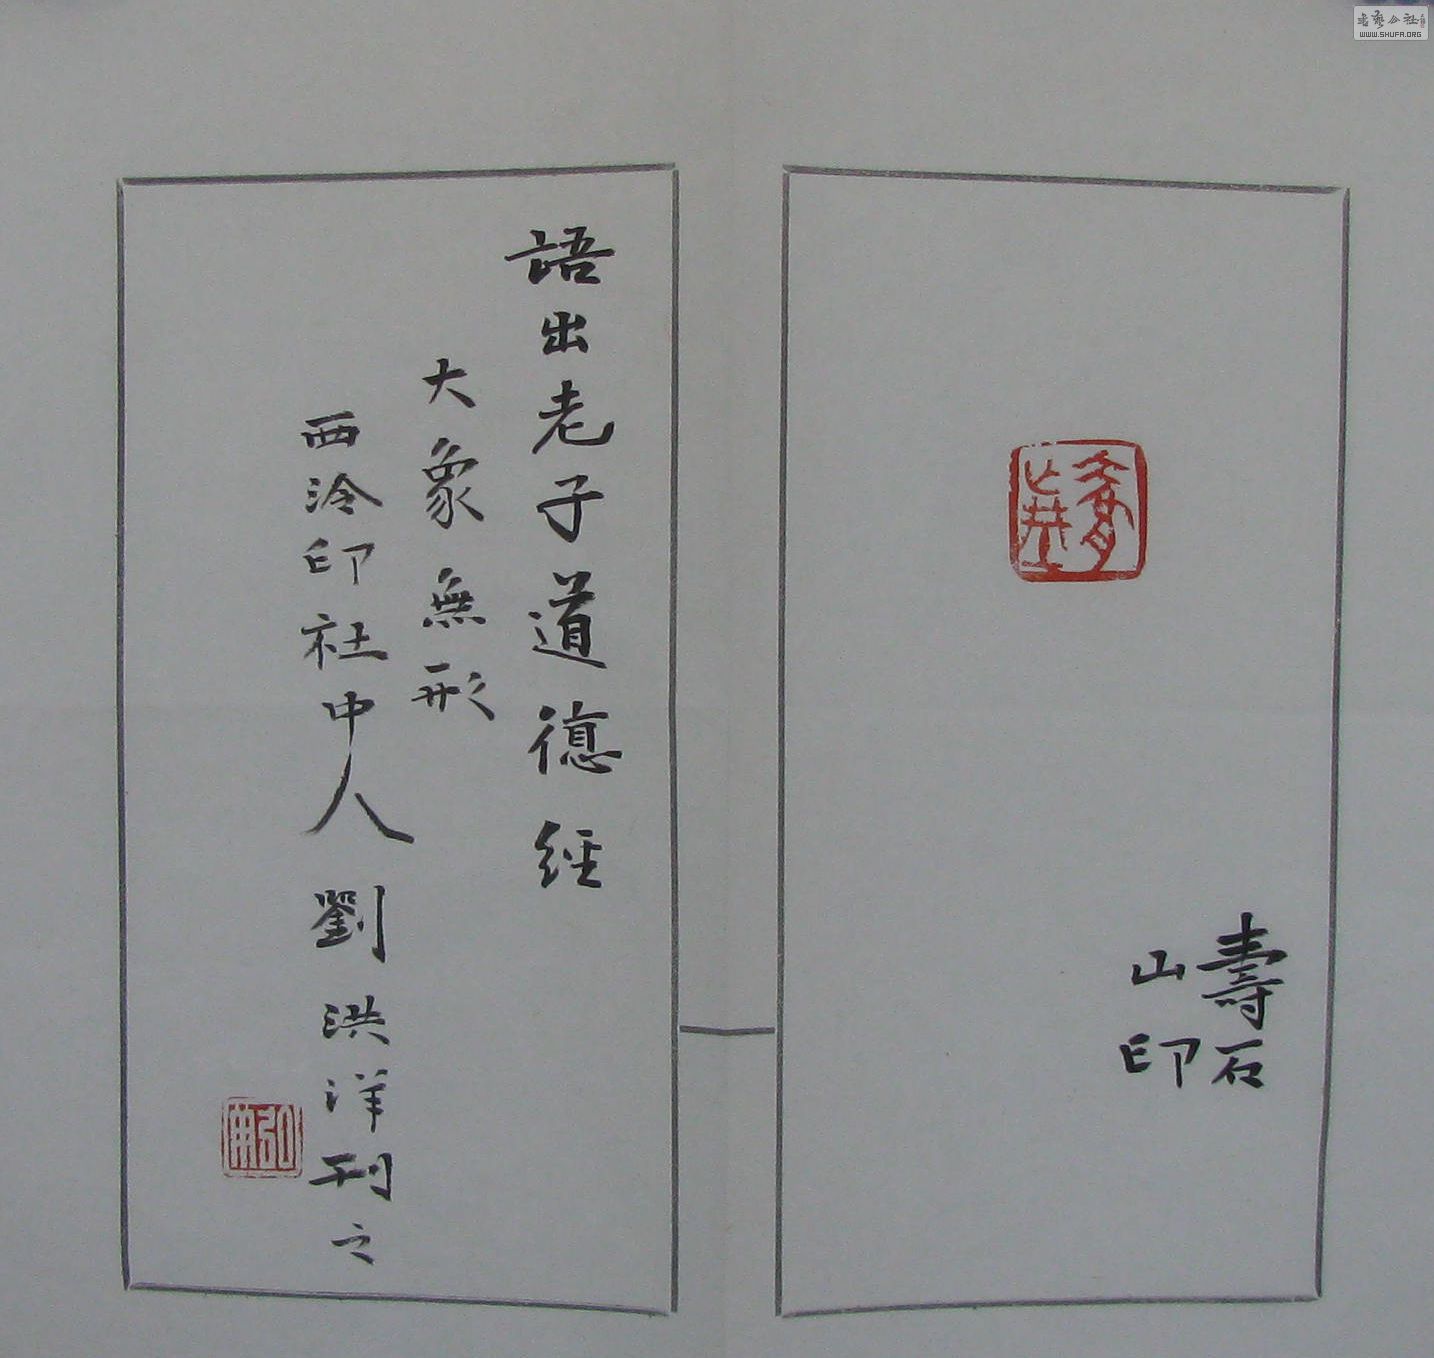 壽石
山印
語出老子道德經
大象無形
西泠印社中人劉洪洋刊之
WWW.SHUFA.ORG